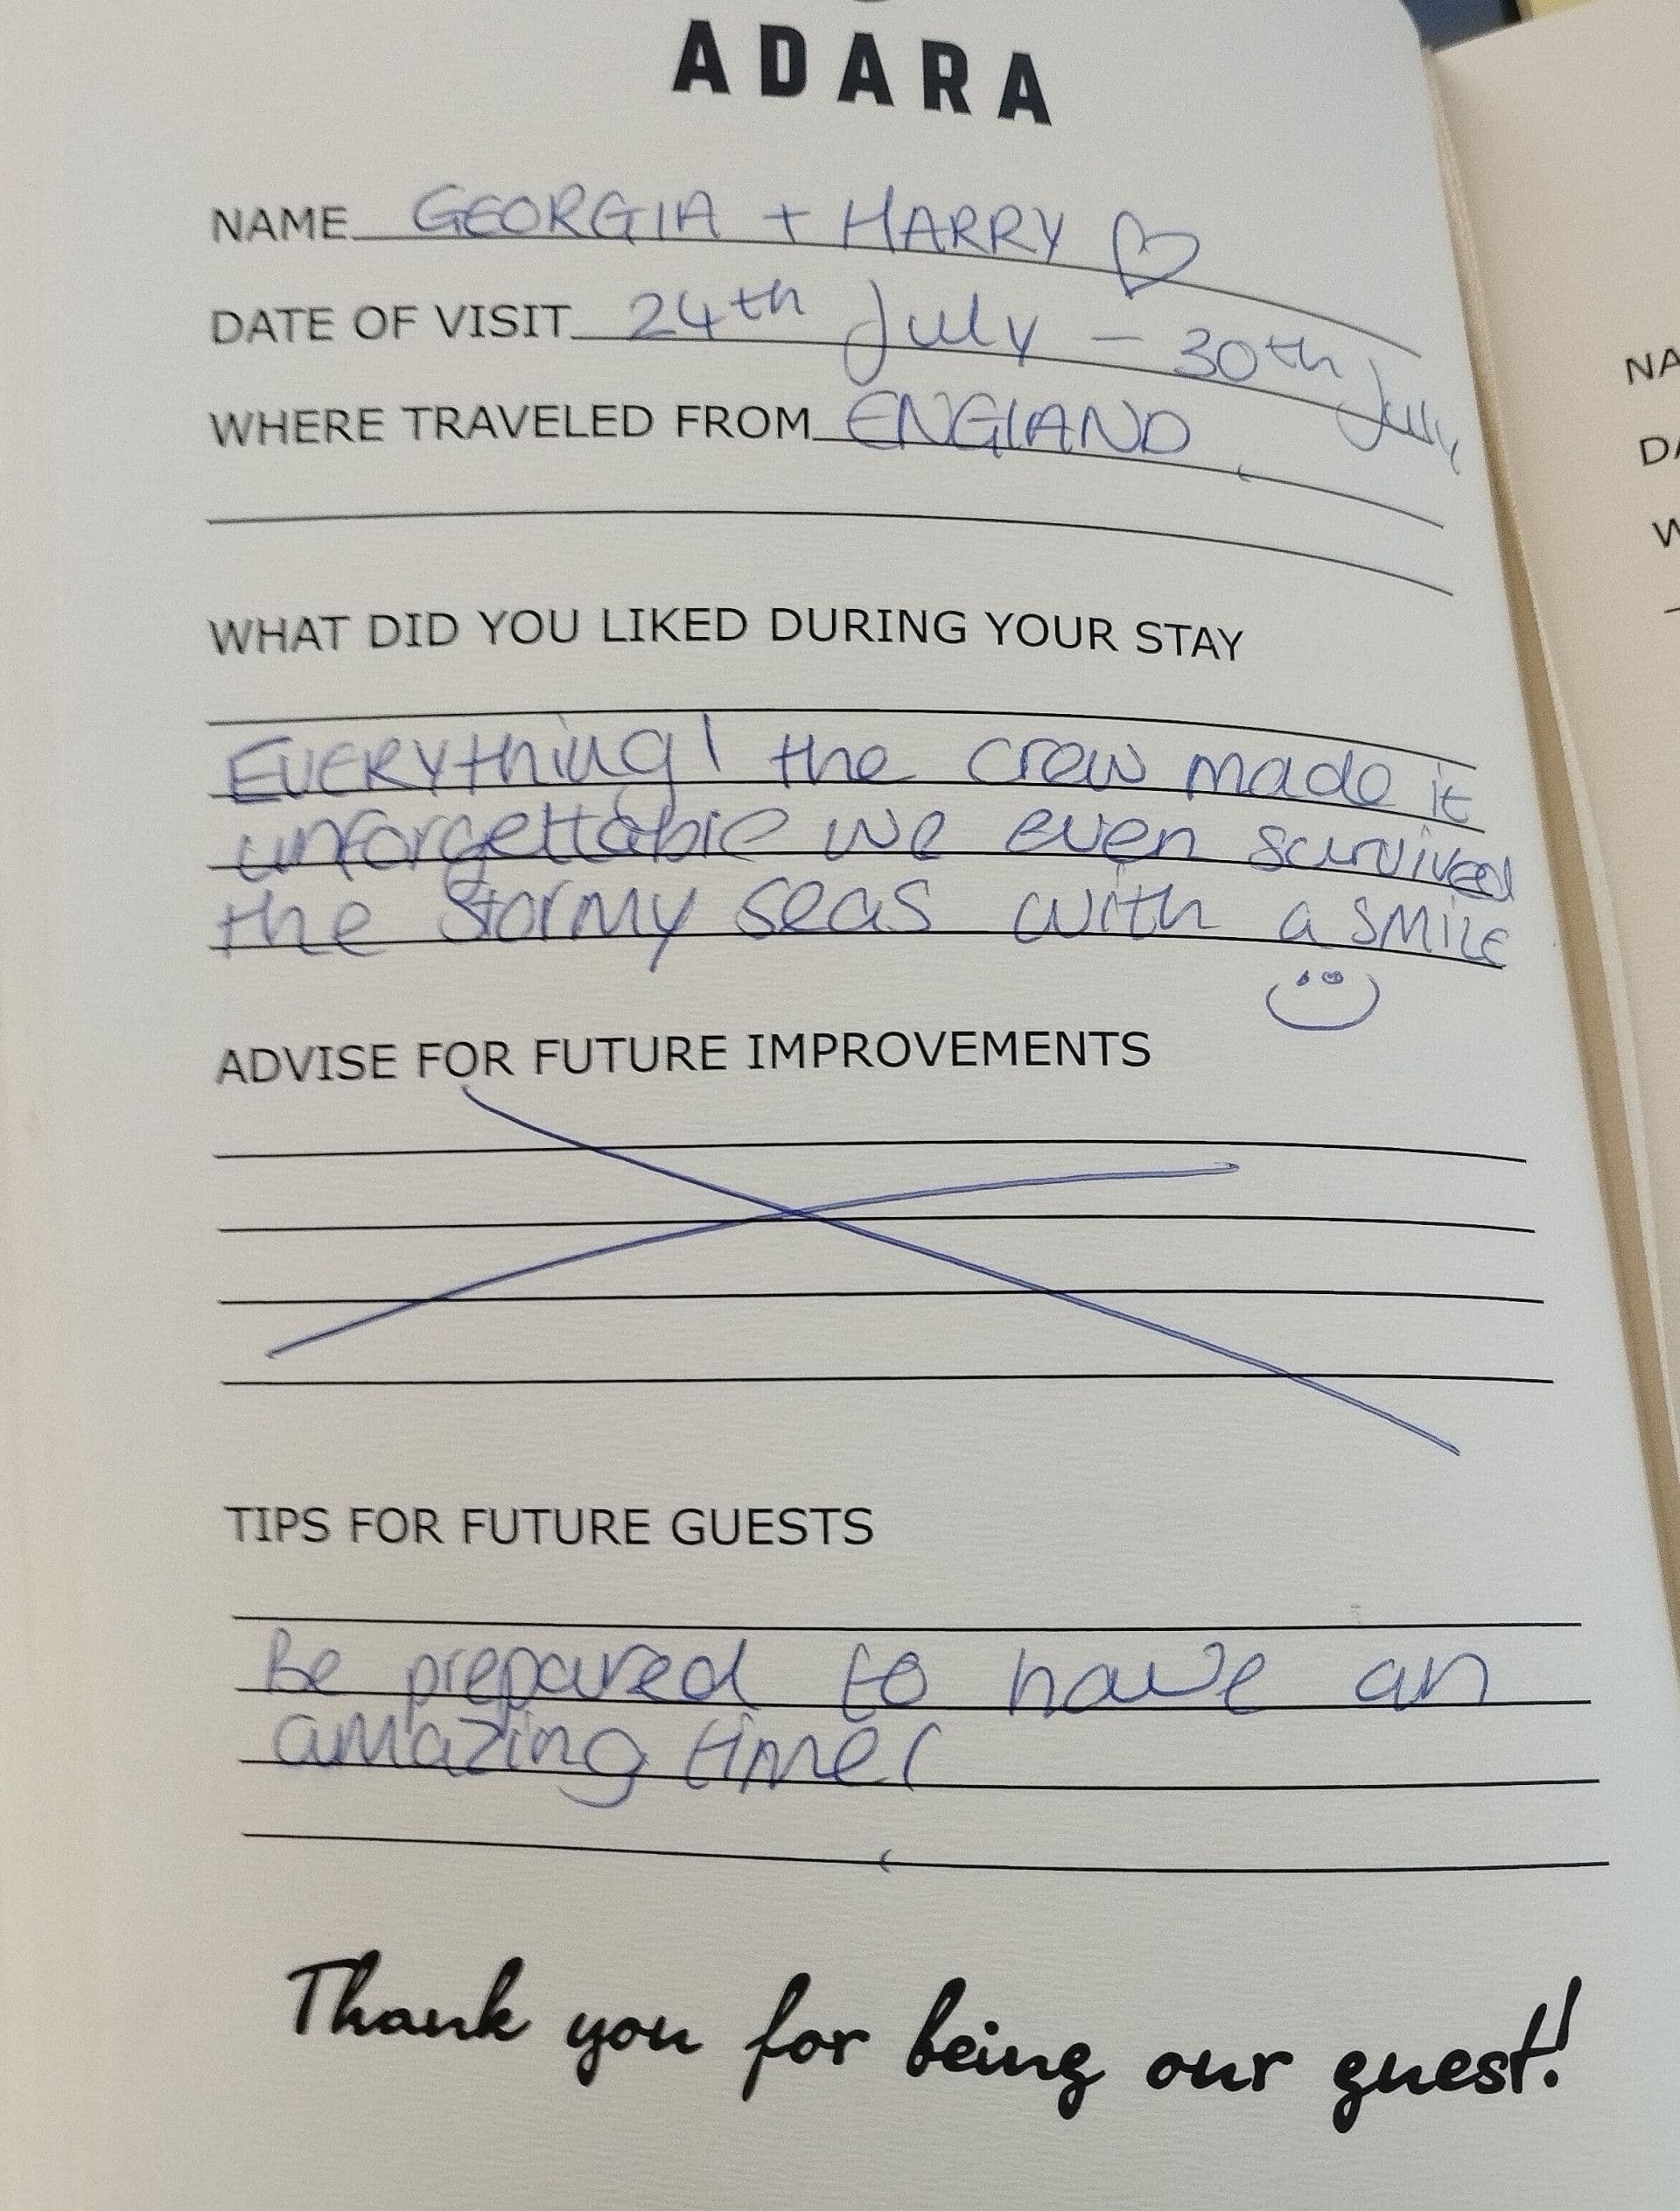 ADARA
NAME GEORGIA + HARRY ♡
DATE OF VISIT 24th July – 30th July
WHERE TRAVELED FROM ENGLAND
WHAT DID YOU LIKED DURING YOUR STAY
Everything! the crew made it
unforgettable we even survived
the stormy seas with a smile
ADVISE FOR FUTURE IMPROVEMENTS
TIPS FOR FUTURE GUESTS
Be prepared to have an
amazing time!
Thank you for being our guest!